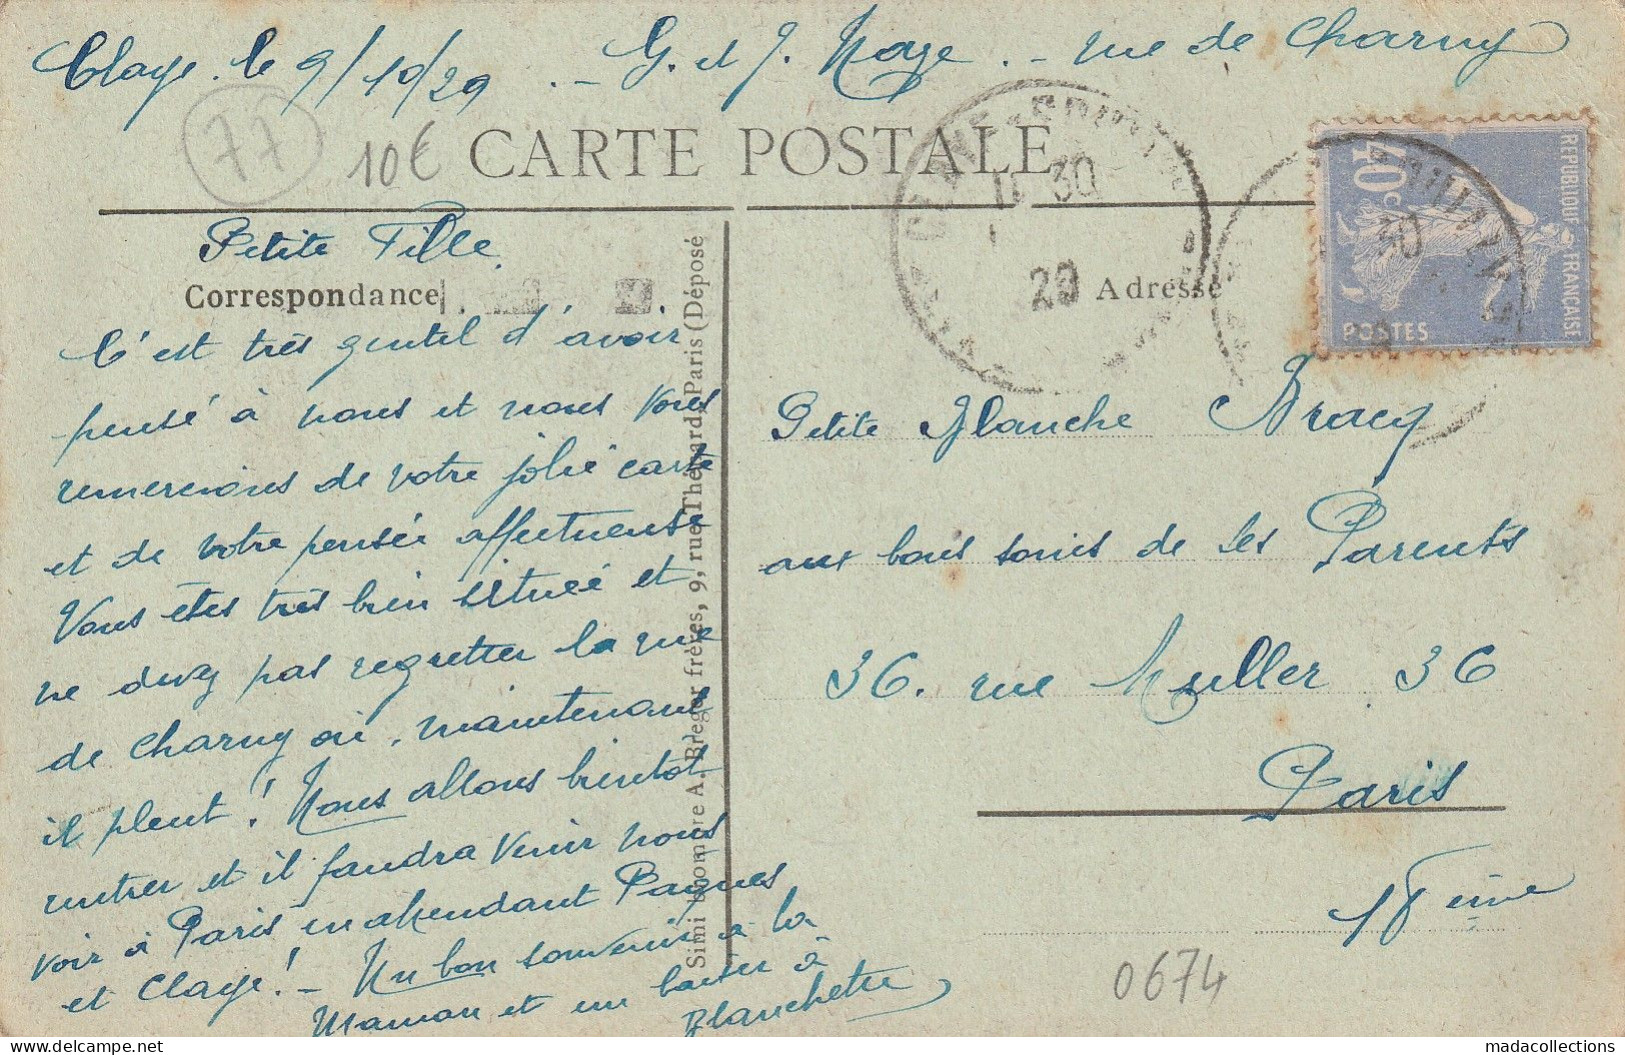 Claye. le 9/10/29. – G. et J. Noze. – rue de Charny
77
10€
CARTE POSTALE
30
29
REPUBLIQUE FRANÇAISE
40c
30
POSTES
Petite Fille.
Correspondance
Adresse
C'est très gentil d'avoir
pensé à nous et nous vous
remercions de votre jolie carte
et de votre pensée affectueuse
Vous êtes très bien située et
ne devez pas regretter la rue
de Charny où, maintenant
il pleut! Nous allons bientôt
rentrer et il faudra venir nous
voir à Paris en attendant Paques
et Claye! – Un bon souvenir à la
Maman et un baiser à
Blanchette
Simili bromure A. Breger frères, 9, rue Thénard, Paris (Déposé
Petite Blanche Bracy
aux bons soins de ses Parents
36. rue Muller 36
Paris
18ème
0674
madacollections
delcampe.net